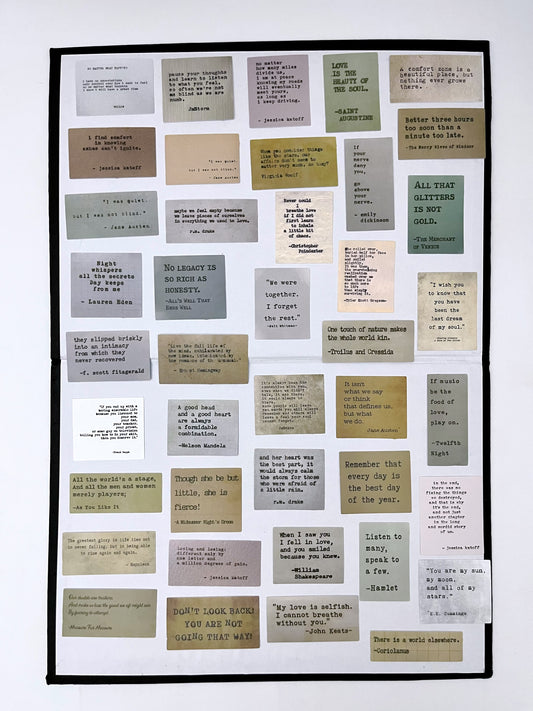 NO MATTER WHAT HAPPENS
pause your thoughts
and learn to listen
to what you feel.
so often we're not
as blind as we are
numb.
JmStorm
no matter
how many miles
divide us,
i am at peace
knowing my roads
will eventually
meet yours,
as long as
i keep driving.
- jessica katoff
LOVE
IS THE
BEAUTY OF
THE SOUL.
-SAINT
AUGUSTINE
A comfort zone is a
beautiful place, but
nothing ever grows
there.
i find comfort
in knowing
ashes can't ignite.
- jessica katoff
"I was quiet,
but I was not blind."
- Jane Austen
When you consider things
like the stars, our
affairs don't seem to
matter very much, do they?
Virginia Woolf
if
your
nerve
deny
you,
go
above
your
nerve.
- emily
dickinson
Better three hours
too soon than a
minute too late.
-The Merry Wives of Windsor
"I was quiet,
but I was not blind."
- Jane Austen
maybe we feel empty because
we leave pieces of ourselves
in everything we used to love.
r.m. drake
Never could
I breathe love
if I did not
first learn
to inhale
a little bit
of chaos.
-Christopher
Poindexter
ALL THAT
GLITTERS
IS NOT
GOLD.
-THE MERCHANT OF
VENICE
Night
whispers
all the secrets
Day keeps
from me
- Lauren Eden
NO LEGACY IS
SO RICH AS
HONESTY.
-ALL'S WELL THAT
ENDS WELL
"We were
together.
I forget
the rest."
-Walt Whitman-
-Tyler Knott Gregson-
"I wish you
to know that
you have
been the
last dream
of my soul."
they slipped briskly
into an intimacy
from which they
never recovered
-f. scott fitzgerald
"Live the full life of
the mind, exhilarated by
new ideas, intoxicated by
the romance of the unusual."
- Ernest Hemingway
One touch of nature makes
the whole world kin.
-Troilus and Cressida
A good head
and a good heart
are always
a formidable
combination.
-Nelson Mandela
It isn't
what we say
or think
that defines us,
but what
we do.
Jane Austen
If music
be the
food of
love,
play on.
-Twelfth
Night
All the world's a stage,
And all the men and women
merely players;
-As You Like It
Though she be but
little, she is
fierce!
-A Midsummer Night's Dream
and her heart was
the best part, it
would always calm
the storm for those
who were afraid of
a little rain.
r.m. drake
Remember that
every day is
the best day
of the year.
in the end,
there was no
fixing the things
so destroyed,
and that is why
it's the end,
and not just
another chapter
in the long
and sordid story
of us.
- jessica katoff
The greatest glory in life lies not
in never falling, but in being able
to rise again and again.
- Napoleon
Loving and losing:
different only by
one letter and
a million degrees of gain.
- jessica katoff
When I saw you
I fell in love,
and you smiled
because you knew.
-William
Shakespeare
Listen to
many,
speak to
a few.
-Hamlet
"You are my sun,
my moon,
and all of my
stars."
-E.E. Cummings
Our doubts are traitors,
And make us lose the good we oft might win
By fearing to attempt.
-Measure For Measure
DON'T LOOK BACK!
YOU ARE NOT
GOING THAT WAY!
"My love is selfish.
I cannot breathe
without you."
-John Keats-
There is a world elsewhere.
-Coriolanus